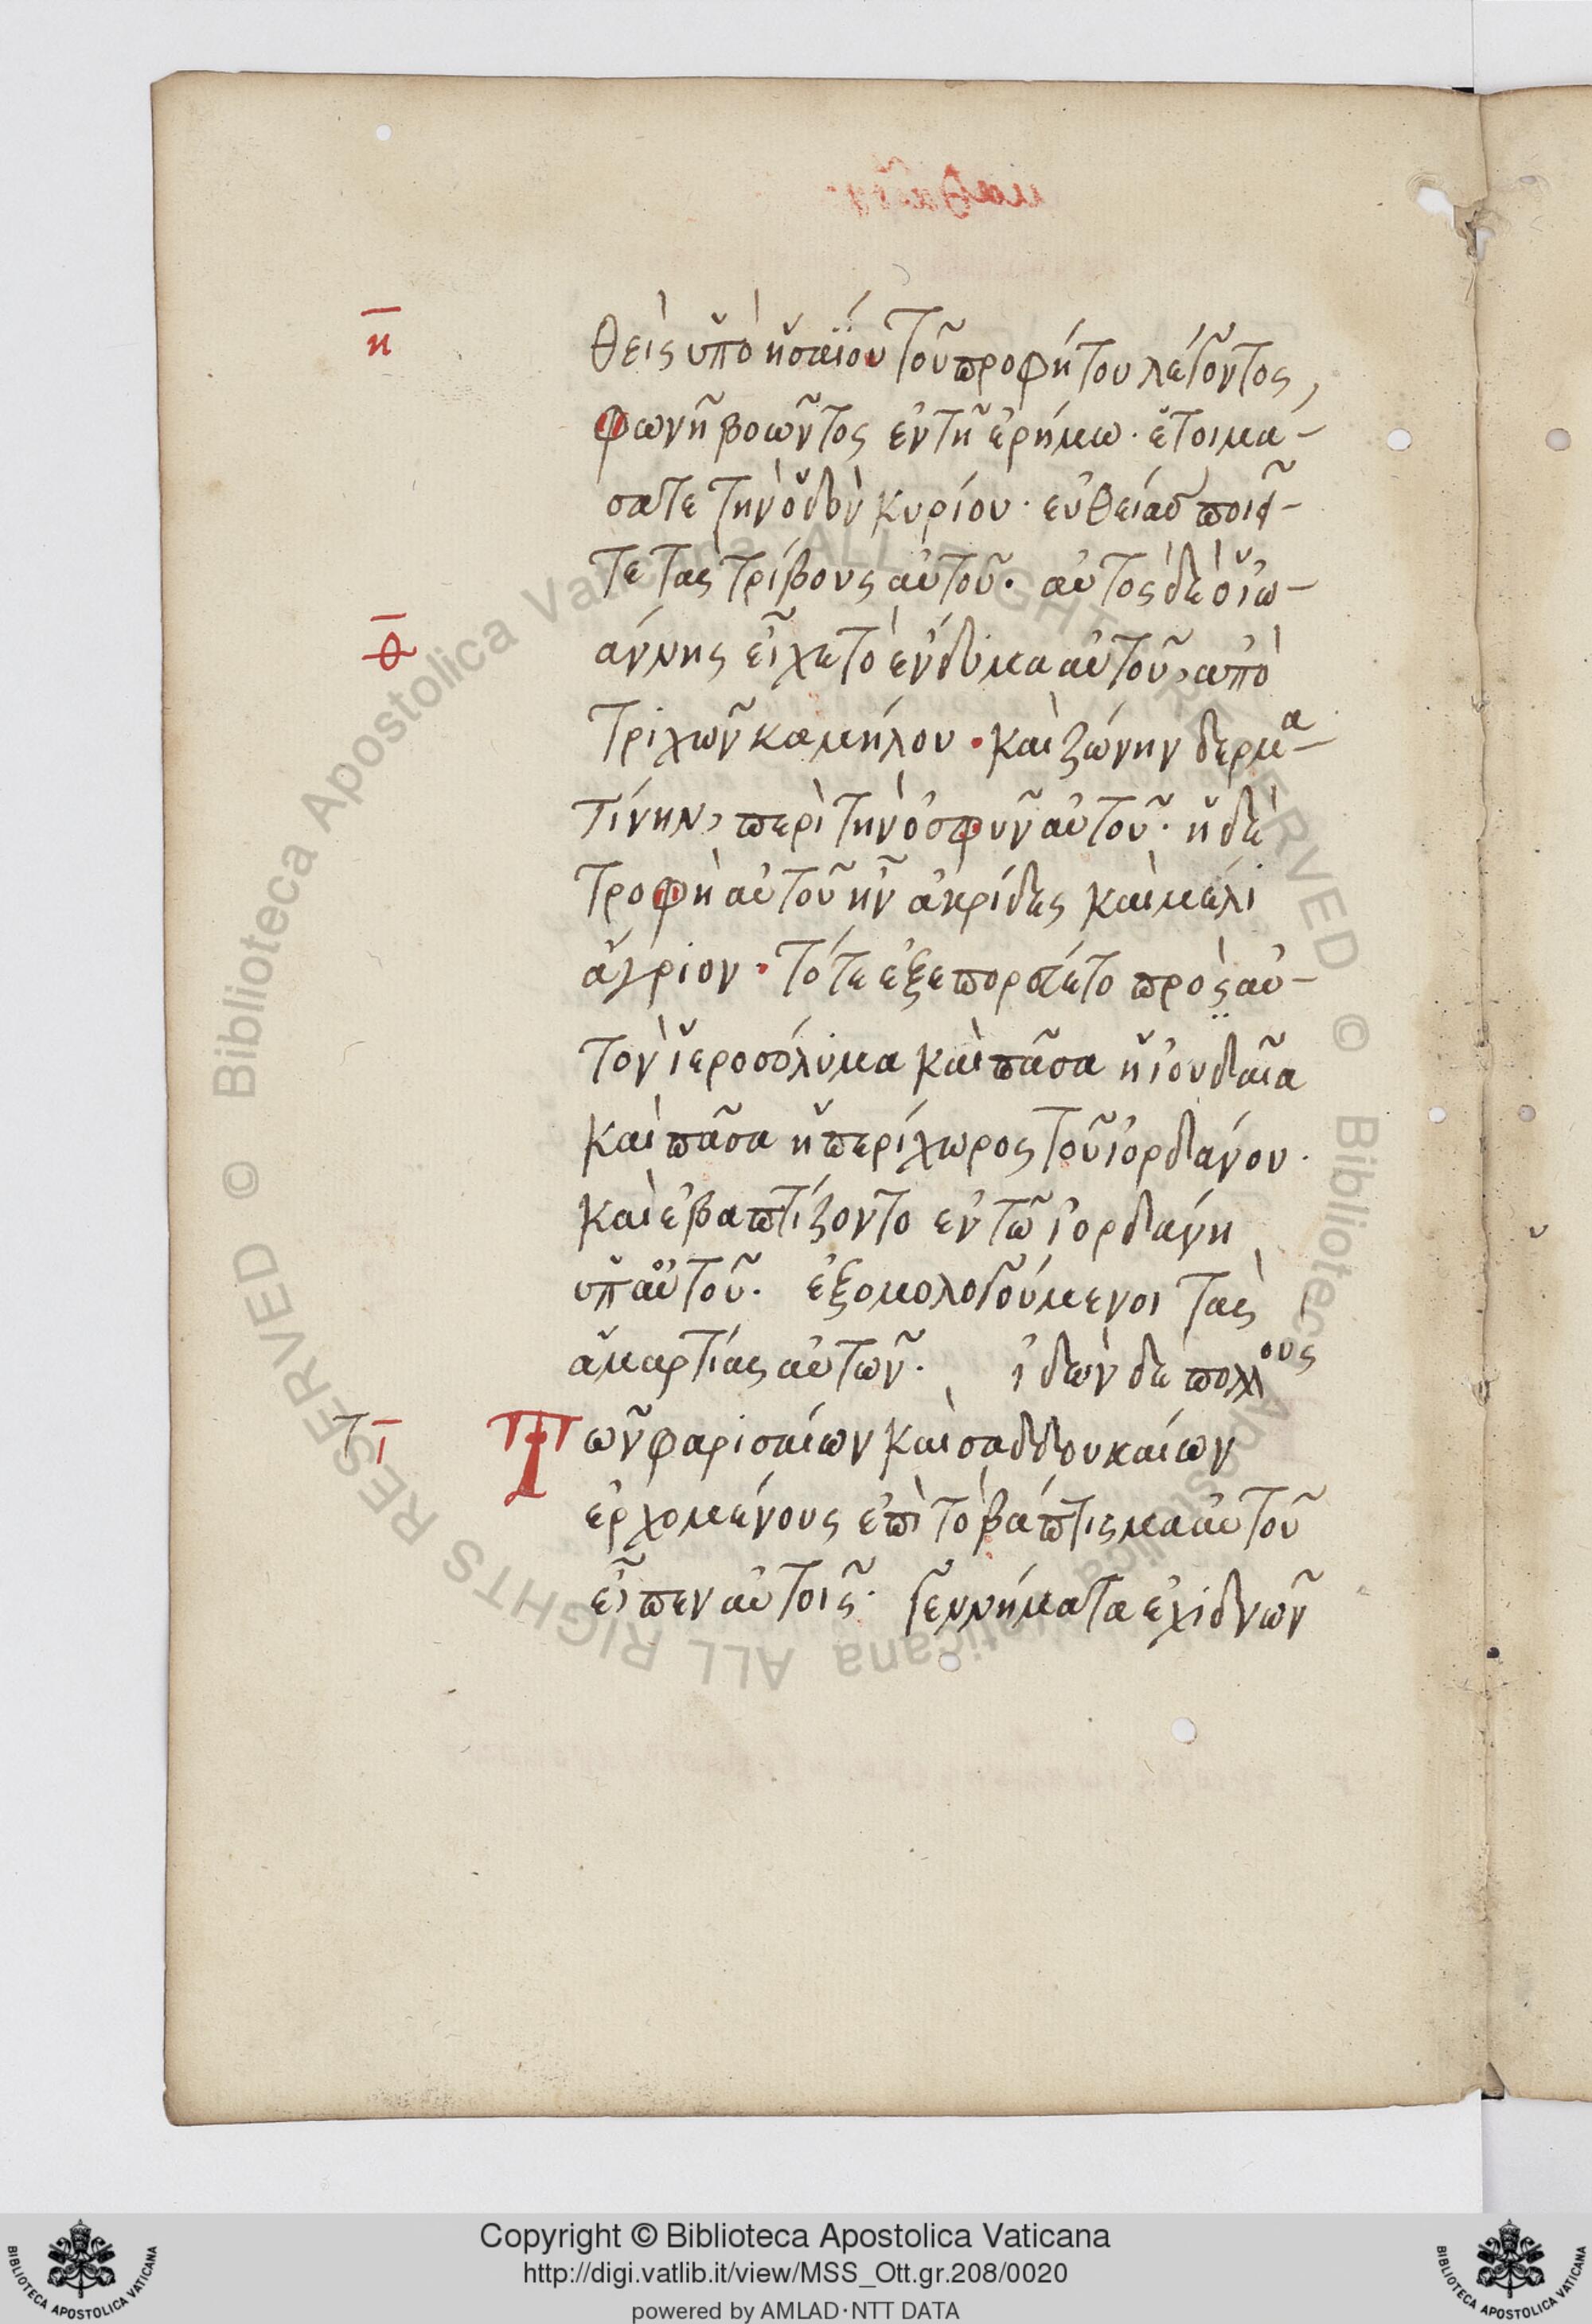 η
θεὶς ὑπὸ ἡσαΐου τοῦ προφήτου λέγοντος,
φωνῆ βοῶντος ἐν τῆ ἐρήμω· ἑτοιμά-
σατε τὴν ὁδὸν κυρίου· εὐθείας ποιεῖ-
τε τὰς τρίβους αὐτοῦ· αὐτὸς δὲ ὁ ἰω-
θ
άννης εἶχε τὸ ἔνδυμα αὐτοῦ, ἀπὸ
τριχῶν καμήλου · καὶ ζώνην δερμα-
τίνην, περὶ τὴν ὀσφυν αὐτοῦ· ἡ δὲ
τροφὴ αὐτοῦ ἦν ἀκρίδες καὶ μέλι
ἄγριον · τότε ἐξεπορεύετο πρὸς αὐ-
τὸν ἱεροσόλυμα καὶ πᾶσα ἡ ἰουδαῖα
καὶ πᾶσα ἡ περίχωρος τοῦ ἰορδάνου·
καὶ ἐβαπτίζοντο ἐν τῶ ἰορδάνη
ὑπ' αὐτοῦ· ἐξομολογούμενοι τὰς
ἁμαρτίας αὐτῶν· ἰδὼν δὲ πολλοὺς
ι
Τῶν φαρισαίων καὶ σαδδουκαίων
ἐρχομένους ἐπὶ τὸ βάπτισμα αὐτοῦ
εἶπεν αὐτοῖς· γεννήματα ἐχιδνῶν
© Biblioteca Apostolica Vaticana ALL RIGHTS RESERVED
Copyright © Biblioteca Apostolica Vaticana
http://digi.vatlib.it/view/MSS_Ott.gr.208/0020
powered by AMLAD·NTT DATA
BIBLIOTECA APOSTOLICA VATICANA
BIBLIOTECA APOSTOLICA VATICANA